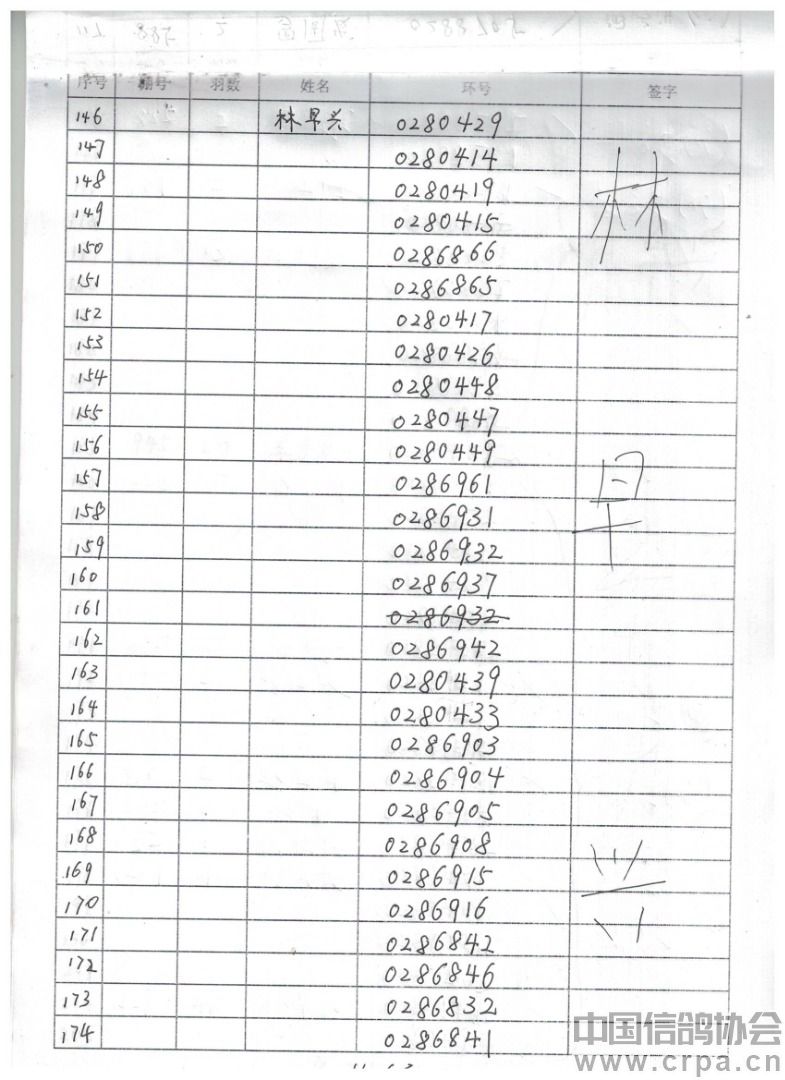 序号 棚号 羽数 姓名 环号 签字
146 林早兴 0280429
147 0280414
148 0280419
149 0280415
150 0286866
151 0286865
152 0280417
153 0280426
154 0280448
155 0280447
156 0280449
157 0286961
158 0286931
159 0286932
160 0286937
161 0286932
162 0286942
163 0280439
164 0280433
165 0286903
166 0286904
167 0286905
168 0286908
169 0286915
170 0286916
171 0286842
172 0286846
173 0286832
174 0286841
林
早
兴
中国信鸽协会
www.crpa.cn